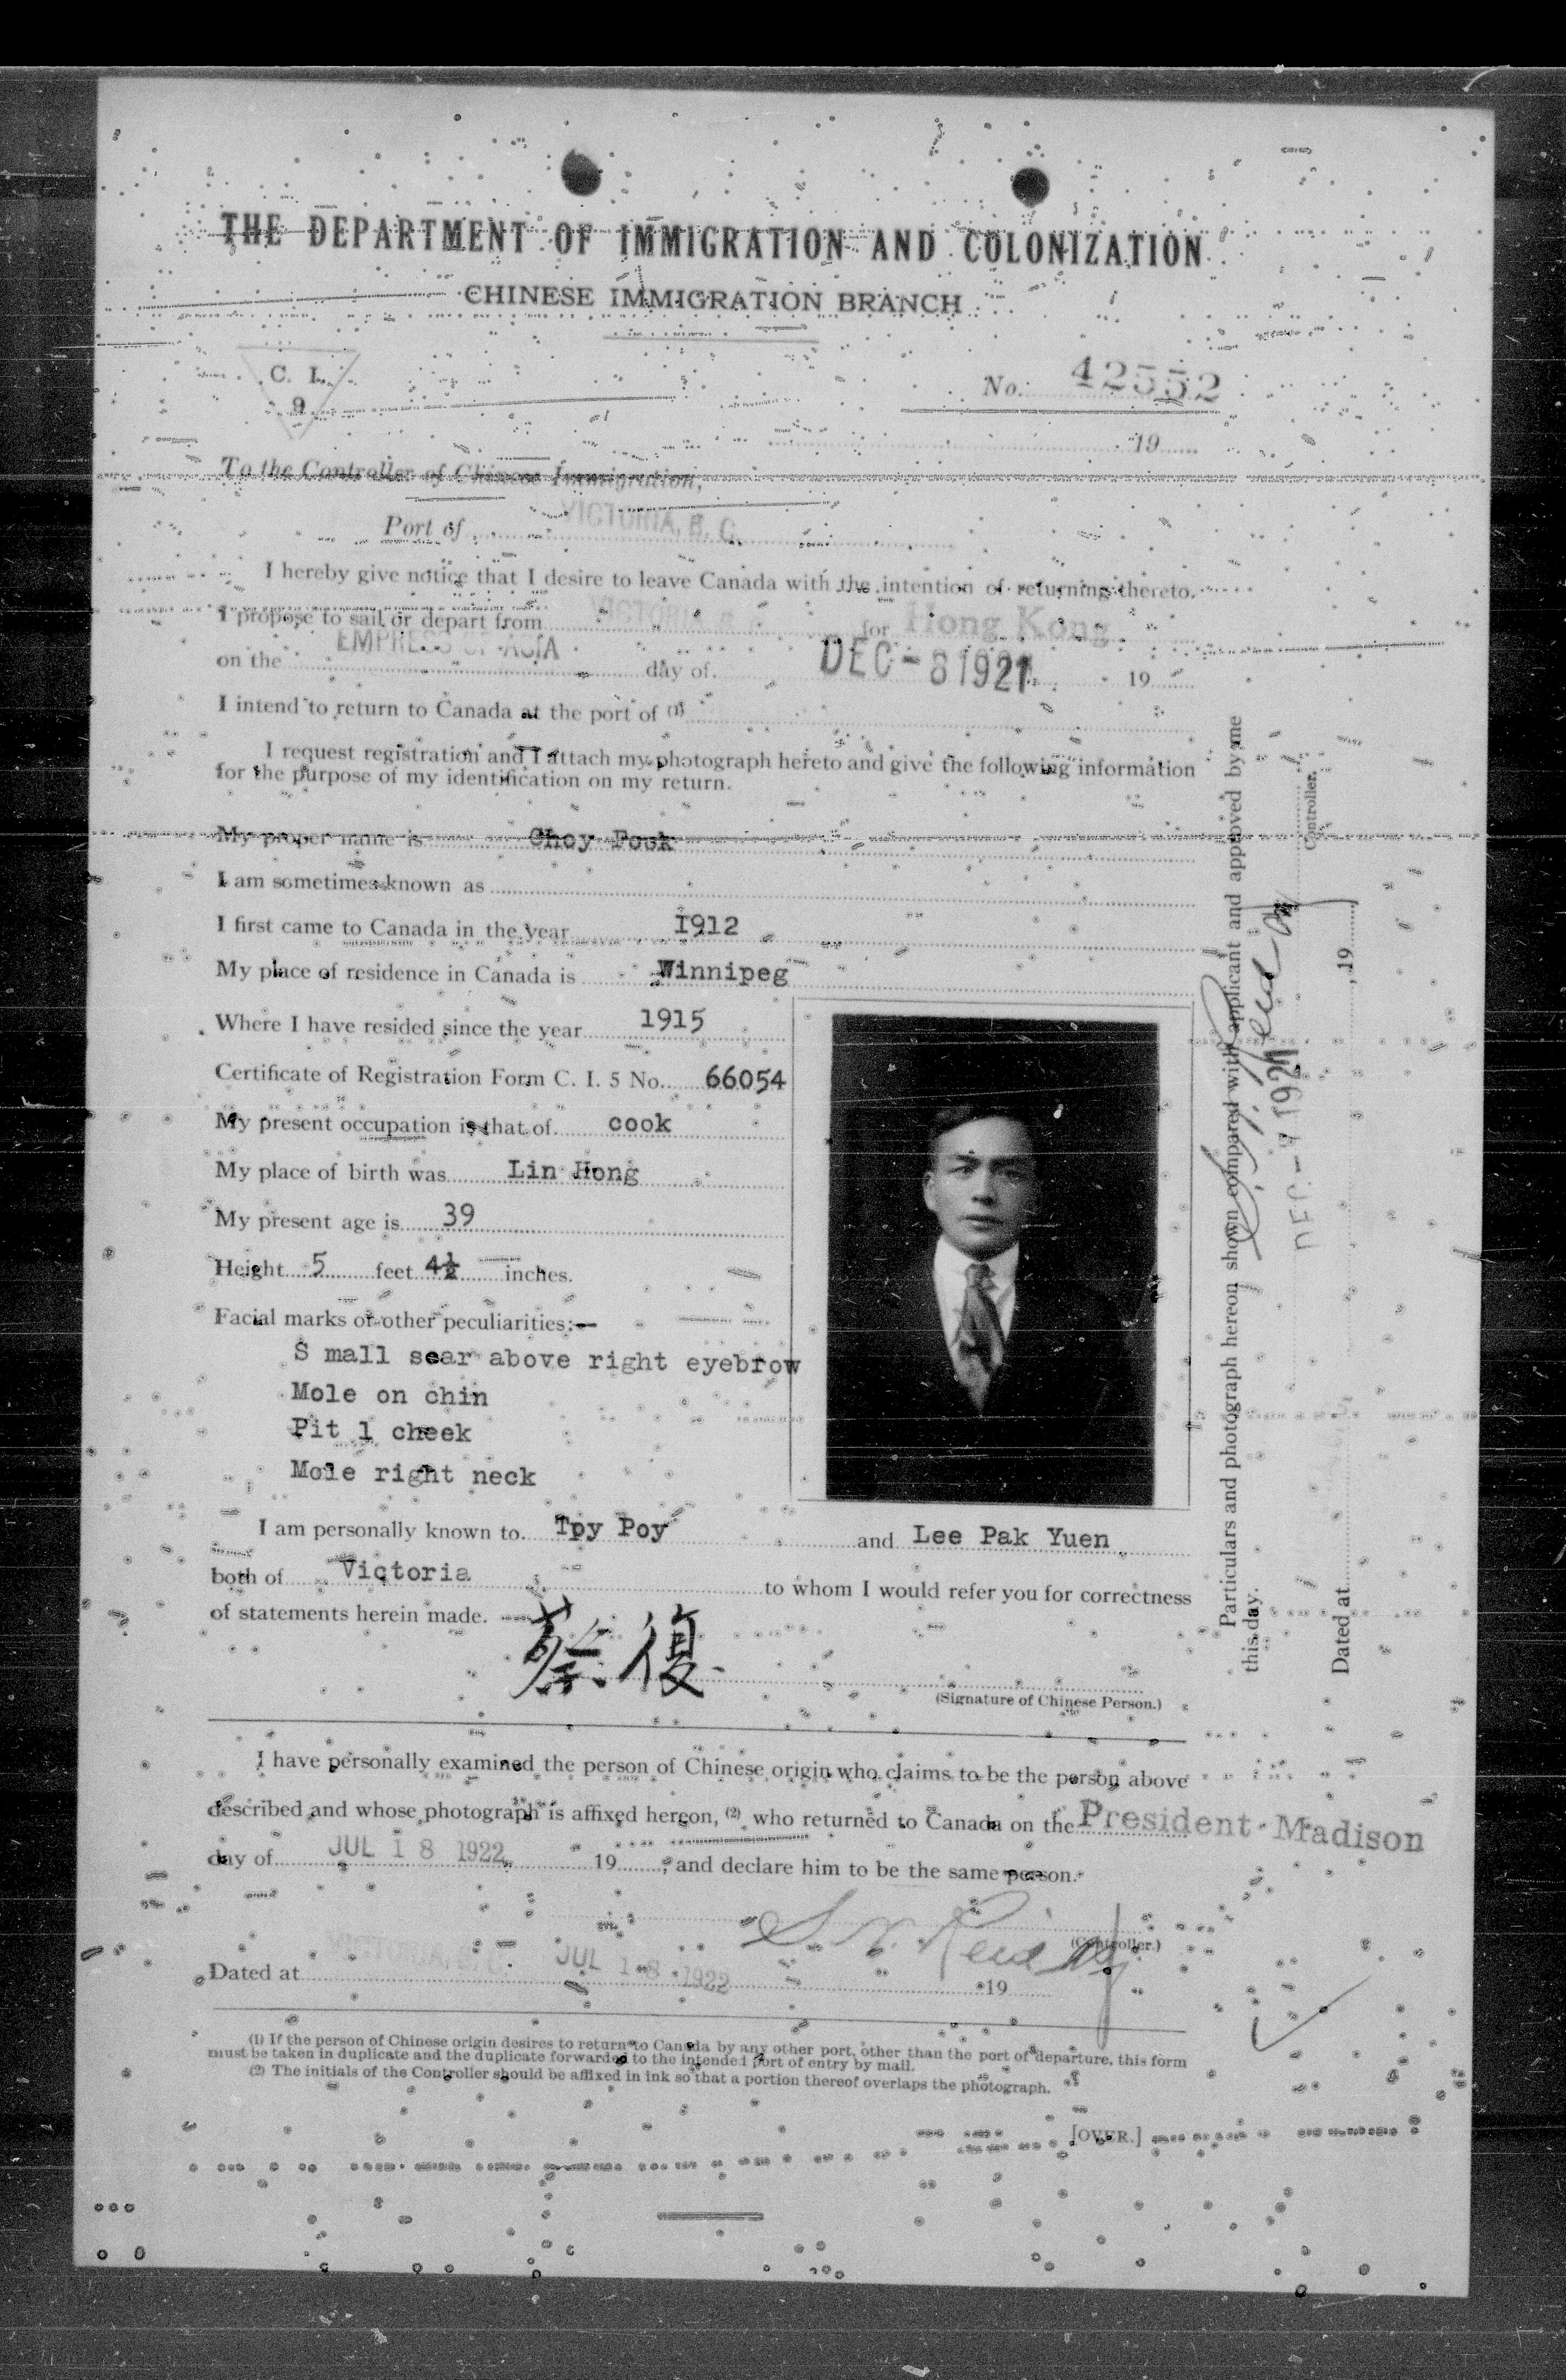 THE DEPARTMENT OF IMMIGRATION AND COLONIZATION
CHINESE IMMIGRATION BRANCH
C. I.
9
No. 42552
19
To the Controller of Chinese Immigration,
Port of VICTORIA, B. C.
I hereby give notice that I desire to leave Canada with the intention of returning thereto.
I propose to sail or depart from VICTORIA, B. C. for Hong Kong
on the EMPRESS OF ASIA day of DEC - 8 1921 19
I intend to return to Canada at the port of (1)
I request registration and I attach my photograph hereto and give the following information
for the purpose of my identification on my return.
My proper name is Choy Fook
I am sometimes known as
I first came to Canada in the year 1912
My place of residence in Canada is Winnipeg
Where I have resided since the year 1915
Certificate of Registration Form C. I. 5 No. 66054
My present occupation is that of cook
My place of birth was Lin Hong
My present age is 39
Height 5 feet 4½ inches.
Facial marks or other peculiarities:—
S mall scar above right eyebrow
Mole on chin
Pit l cheek
Mole right neck
I am personally known to Tpy Poy and Lee Pak Yuen
both of Victoria to whom I would refer you for correctness
of statements herein made.
蔡復
(Signature of Chinese Person.)
I have personally examined the person of Chinese origin who claims to be the person above
described and whose photograph is affixed hereon, (2) who returned to Canada on the President Madison
day of JUL 18 1922 19 , and declare him to be the same person.
S. N. Reid
(Controller.)
Dated at VICTORIA, B. C. JUL 18 1922 19
(1) If the person of Chinese origin desires to return to Canada by any other port, other than the port of departure, this form
must be taken in duplicate and the duplicate forwarded to the intended port of entry by mail.
(2) The initials of the Controller should be affixed in ink so that a portion thereof overlaps the photograph.
[OVER.]
Particulars and photograph hereon shown compared with applicant and approved by me
this day.
DEC - 1921
Controller.
Dated at , 19